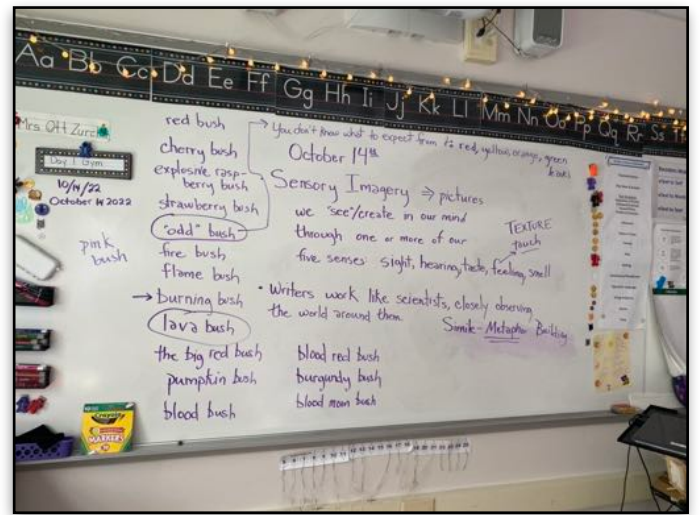 Aa Bb Cc Dd Ee Ff Gg Hh Ii Jj Kk Ll Mm Nn Oo Pp Qq Rr Ss Tt
Mrs. Ott Zurc
Day 1 Gym
10/14/22
October 14 2022
pink
bush
red bush
cherry bush
explosive rasp-
berry bush
strawberry bush
"odd" bush
fire bush
flame bush
→ burning bush
lava bush
the big red bush
pumpkin bush
blood bush
blood red bush
burgundy bush
blood moon bush
You don't know what to expect from it: red, yellow, orange, green
October 14th
Sensory Imagery ⇒ pictures
we "see"/create in our mind
through one or more of our
five senses: sight, hearing, taste, feeling, smell
TEXTURE
touch
• Writers work like scientists, closely observing
the world around them.
Simile - Metaphor Building
Crayola
MARKERS